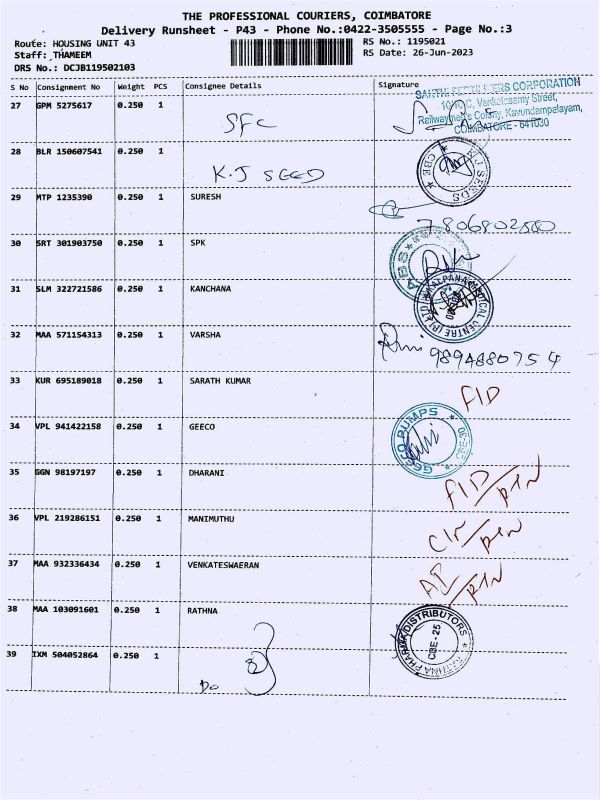 THE PROFESSIONAL COURIERS, COIMBATORE
Delivery Runsheet - P43 - Phone No.:0422-3505555 - Page No.:3
Route: HOUSING UNIT 43
RS No.: 1195021
Staff: THAMEEM
RS Date: 26-Jun-2023
DRS No.: DCJB119502103
S No Consignment No Weight PCS Consignee Details Signature
CORPORATION
Venkatasamy Street,
Railwaymen's Colony, Kavundampalayam,
COIMBATORE - 641030
27 GPM 5275617 0.250 1 SFC
28 BLR 150607541 0.250 1 K.J SEED
CBE K J SEEDS
29 MTP 1235390 0.250 1 SURESH
7806802580
30 SRT 301903750 0.250 1 SPK
ABS
31 SLM 322721586 0.250 1 KANCHANA
KALPANA MEDICAL CENTRE (P) LTD
32 MAA 571154313 0.250 1 VARSHA
9894880754
33 KUR 695189018 0.250 1 SARATH KUMAR
FID
34 VPL 941422158 0.250 1 GEECO
GEECO PUMPS CBE-30
35 GGN 98197197 0.250 1 DHARANI
FID/RTN
36 VPL 219286151 0.250 1 MANIMUTHU
RTN
37 MAA 932336434 0.250 1 VENKATESWAERAN
RTN
38 MAA 103091601 0.250 1 RATHNA
RATHNA PHARMA DISTRIBUTORS CBE-25
39 IXM 504052864 0.250 1 Do